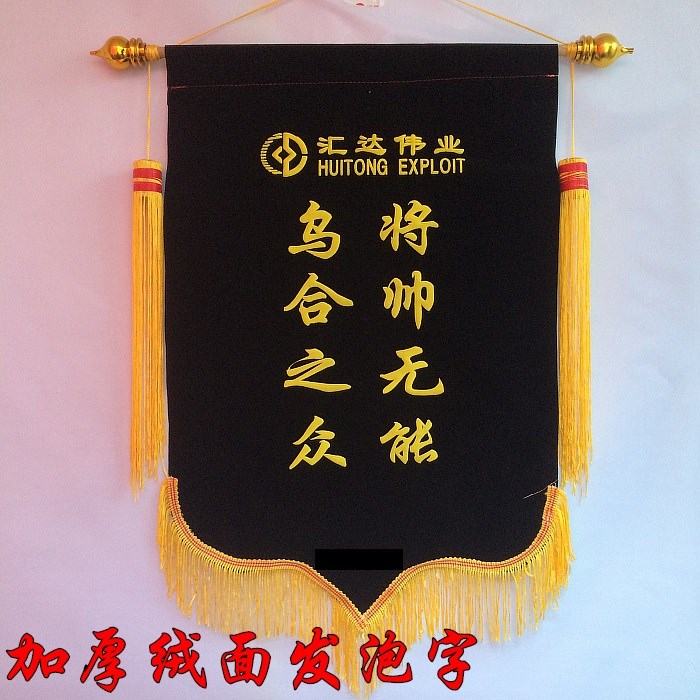 汇达伟业
HUITONG EXPLOIT
将帅无能
乌合之众
加厚绒面发泡字